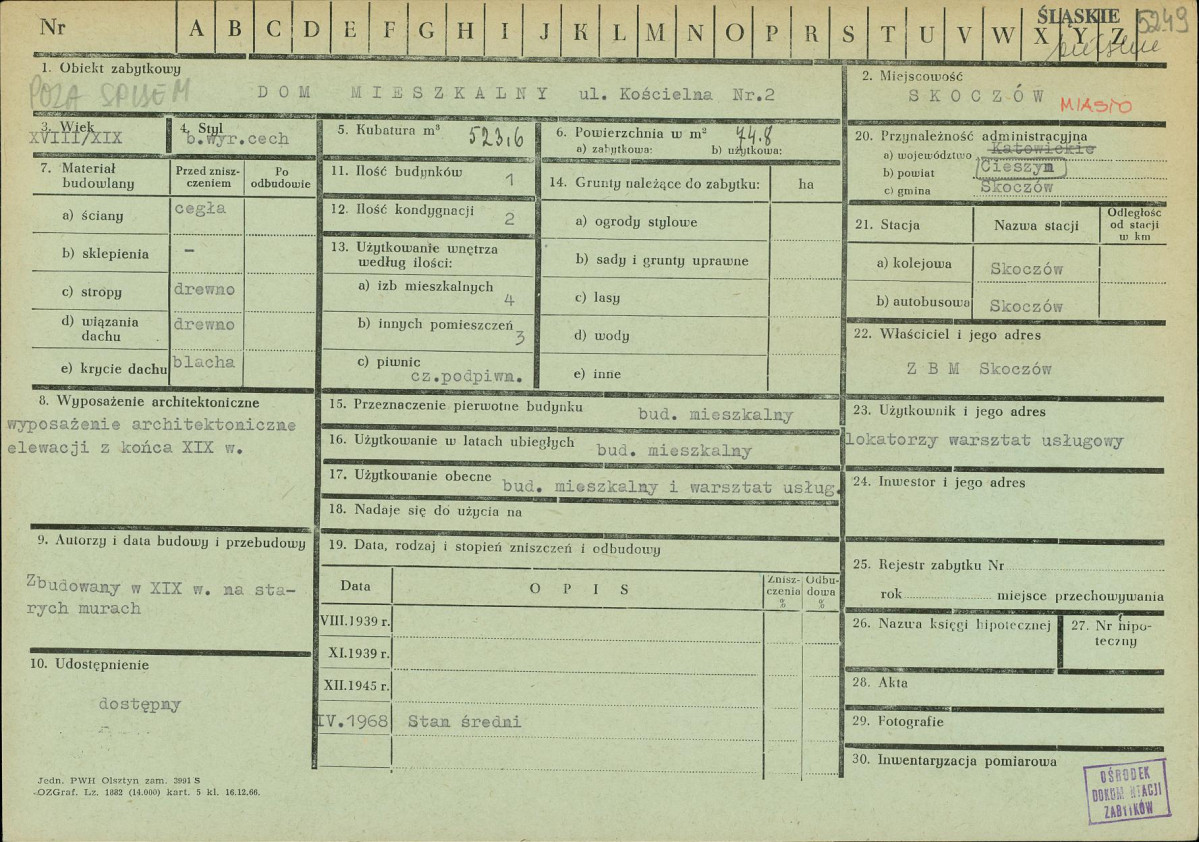 Nr A B C D E F G H I J K L M N O P R S T U V W X Y Z
ŚLĄSKIE 5249
1. Obiekt zabytkowy
POZA SPISEM
DOM MIESZKALNY ul. Kościelna Nr.2
2. Miejscowość
SKOCZÓW MIASTO
3. Wiek
XVIII/XIX
4. Styl
b.wyr.cech
5. Kubatura m³ 523,6
6. Powierzchnia w m² 74.8
a) zabytkowa: b) użytkowa:
7. Materiał budowlany
Przed zniszczeniem
Po odbudowie
a) ściany cegła
b) sklepienia –
c) stropy drewno
d) wiązania dachu drewno
e) krycie dachu blacha
8. Wyposażenie architektoniczne
wyposażenie architektoniczne
elewacji z końca XIX w.
9. Autorzy i data budowy i przebudowy
Zbudowany w XIX w. na sta-
rych murach
10. Udostępnienie
dostępny
11. Ilość budynków 1
12. Ilość kondygnacji 2
13. Użytkowanie wnętrza
według ilości:
a) izb mieszkalnych 4
b) innych pomieszczeń 3
c) piwnic cz.podpiwn.
14. Grunty należące do zabytku: ha
a) ogrody stylowe
b) sady i grunty uprawne
c) lasy
d) wody
e) inne
15. Przeznaczenie pierwotne budynku bud. mieszkalny
16. Użytkowanie w latach ubiegłych bud. mieszkalny
17. Użytkowanie obecne bud. mieszkalny i warsztat usług.
18. Nadaje się do użycia na
19. Data, rodzaj i stopień zniszczeń i odbudowy
Data OPIS Zniszczenia % Odbudowa %
VIII.1939 r.
XI.1939 r.
XII.1945 r.
IV.1968 Stan średni
20. Przynależność administracyjna
a) województwo Katowickie
b) powiat Cieszyn
c) gmina Skoczów
21. Stacja Nazwa stacji Odległość od stacji w km
a) kolejowa Skoczów
b) autobusowa Skoczów
22. Właściciel i jego adres
ZBM Skoczów
23. Użytkownik i jego adres
lokatorzy warsztat usługowy
24. Inwestor i jego adres
25. Rejestr zabytku Nr
rok miejsce przechowywania
26. Nazwa księgi hipotecznej
27. Nr hipo-
teczny
28. Akta
29. Fotografie
30. Inwentaryzacja pomiarowa
Jedn. PWH Olsztyn zam. 3991 S
OZGraf. Lz. 1882 (14.000) kart. 5 kl. 16.12.66.
OŚRODEK
DOKUMENTACJI
ZABYTKÓW